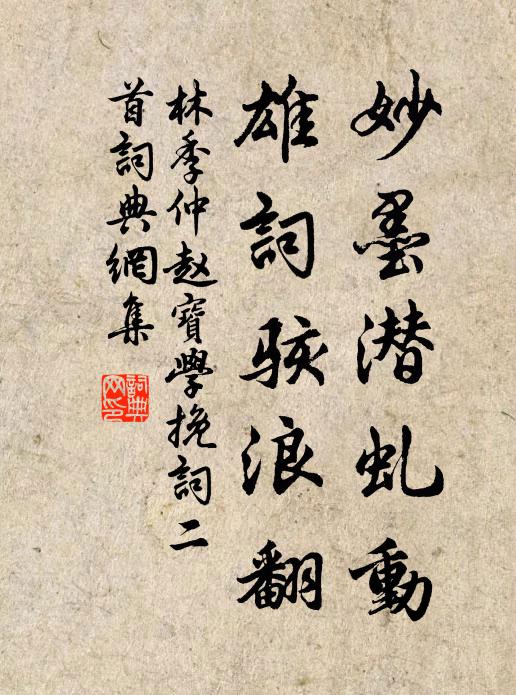 妙墨潜虬動
雄詞駭浪翻
林季仲赵寶學挽詞二
首詞典網集
詞典
网印